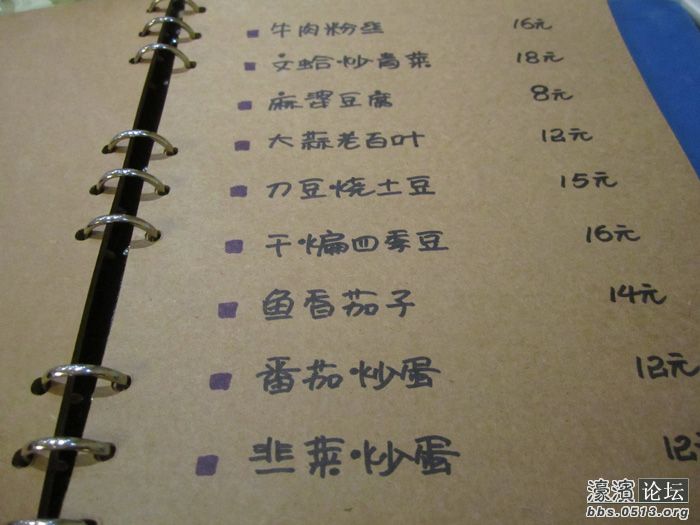 牛肉粉丝 16元
文蛤炒青菜 18元
麻婆豆腐 8元
大蒜老百叶 12元
刀豆烧土豆 15元
干煸四季豆 16元
鱼香茄子 14元
番茄炒蛋 12元
韭菜炒蛋 12元
濠滨论坛
bbs.0513.org